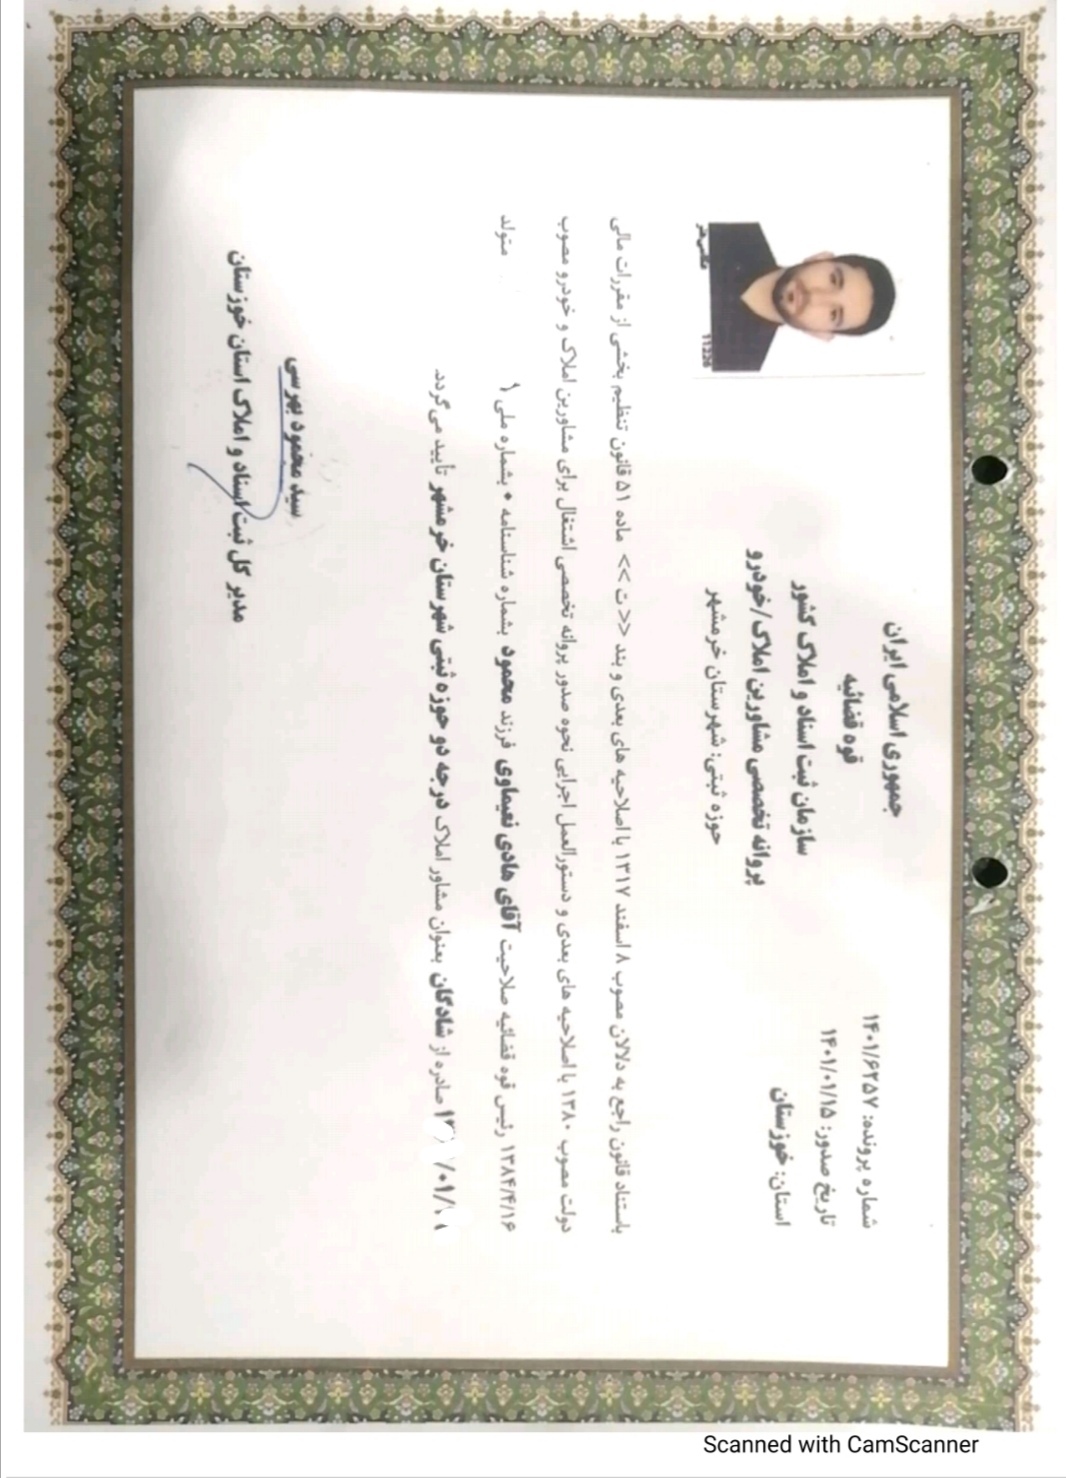 جمهوری اسلامی ایران
قوه قضائیه
سازمان ثبت اسناد و املاک کشور
پروانه تخصصی مشاورین املاک/خودرو
حوزه ثبتی: شهرستان خرمشهر
شماره پرونده: ۱۴۰۱/۶۲۵۷
تاریخ صدور: ۱۴۰۱/۰۱/۱۵
استان: خوزستان
عکاسی هنر
11226
باستناد قانون راجع به دلالان مصوب ۸ اسفند ۱۳۱۷ با اصلاحیه های بعدی و بند <<ت>> ماده ۵۱ قانون تنظیم بخشی از مقررات مالی
دولت مصوب ۱۳۸۰ با اصلاحیه های بعدی و دستورالعمل اجرایی نحوه صدور پروانه تخصصی اشتغال برای مشاورین املاک و خودرو مصوب
۱۳۸۴/۴/۱۶ رئیس قوه قضائیه صلاحیت آقای هادی نعیماوی فرزند محمود بشماره شناسنامه ۰ بشماره ملی ۱ متولد
/۰۱/ صادره از شادگان بعنوان مشاور املاک درجه دو حوزه ثبتی شهرستان خرمشهر تأیید می‌گردد.
سید محمود بهرسی
مدیر کل ثبت اسناد و املاک استان خوزستان
Scanned with CamScanner